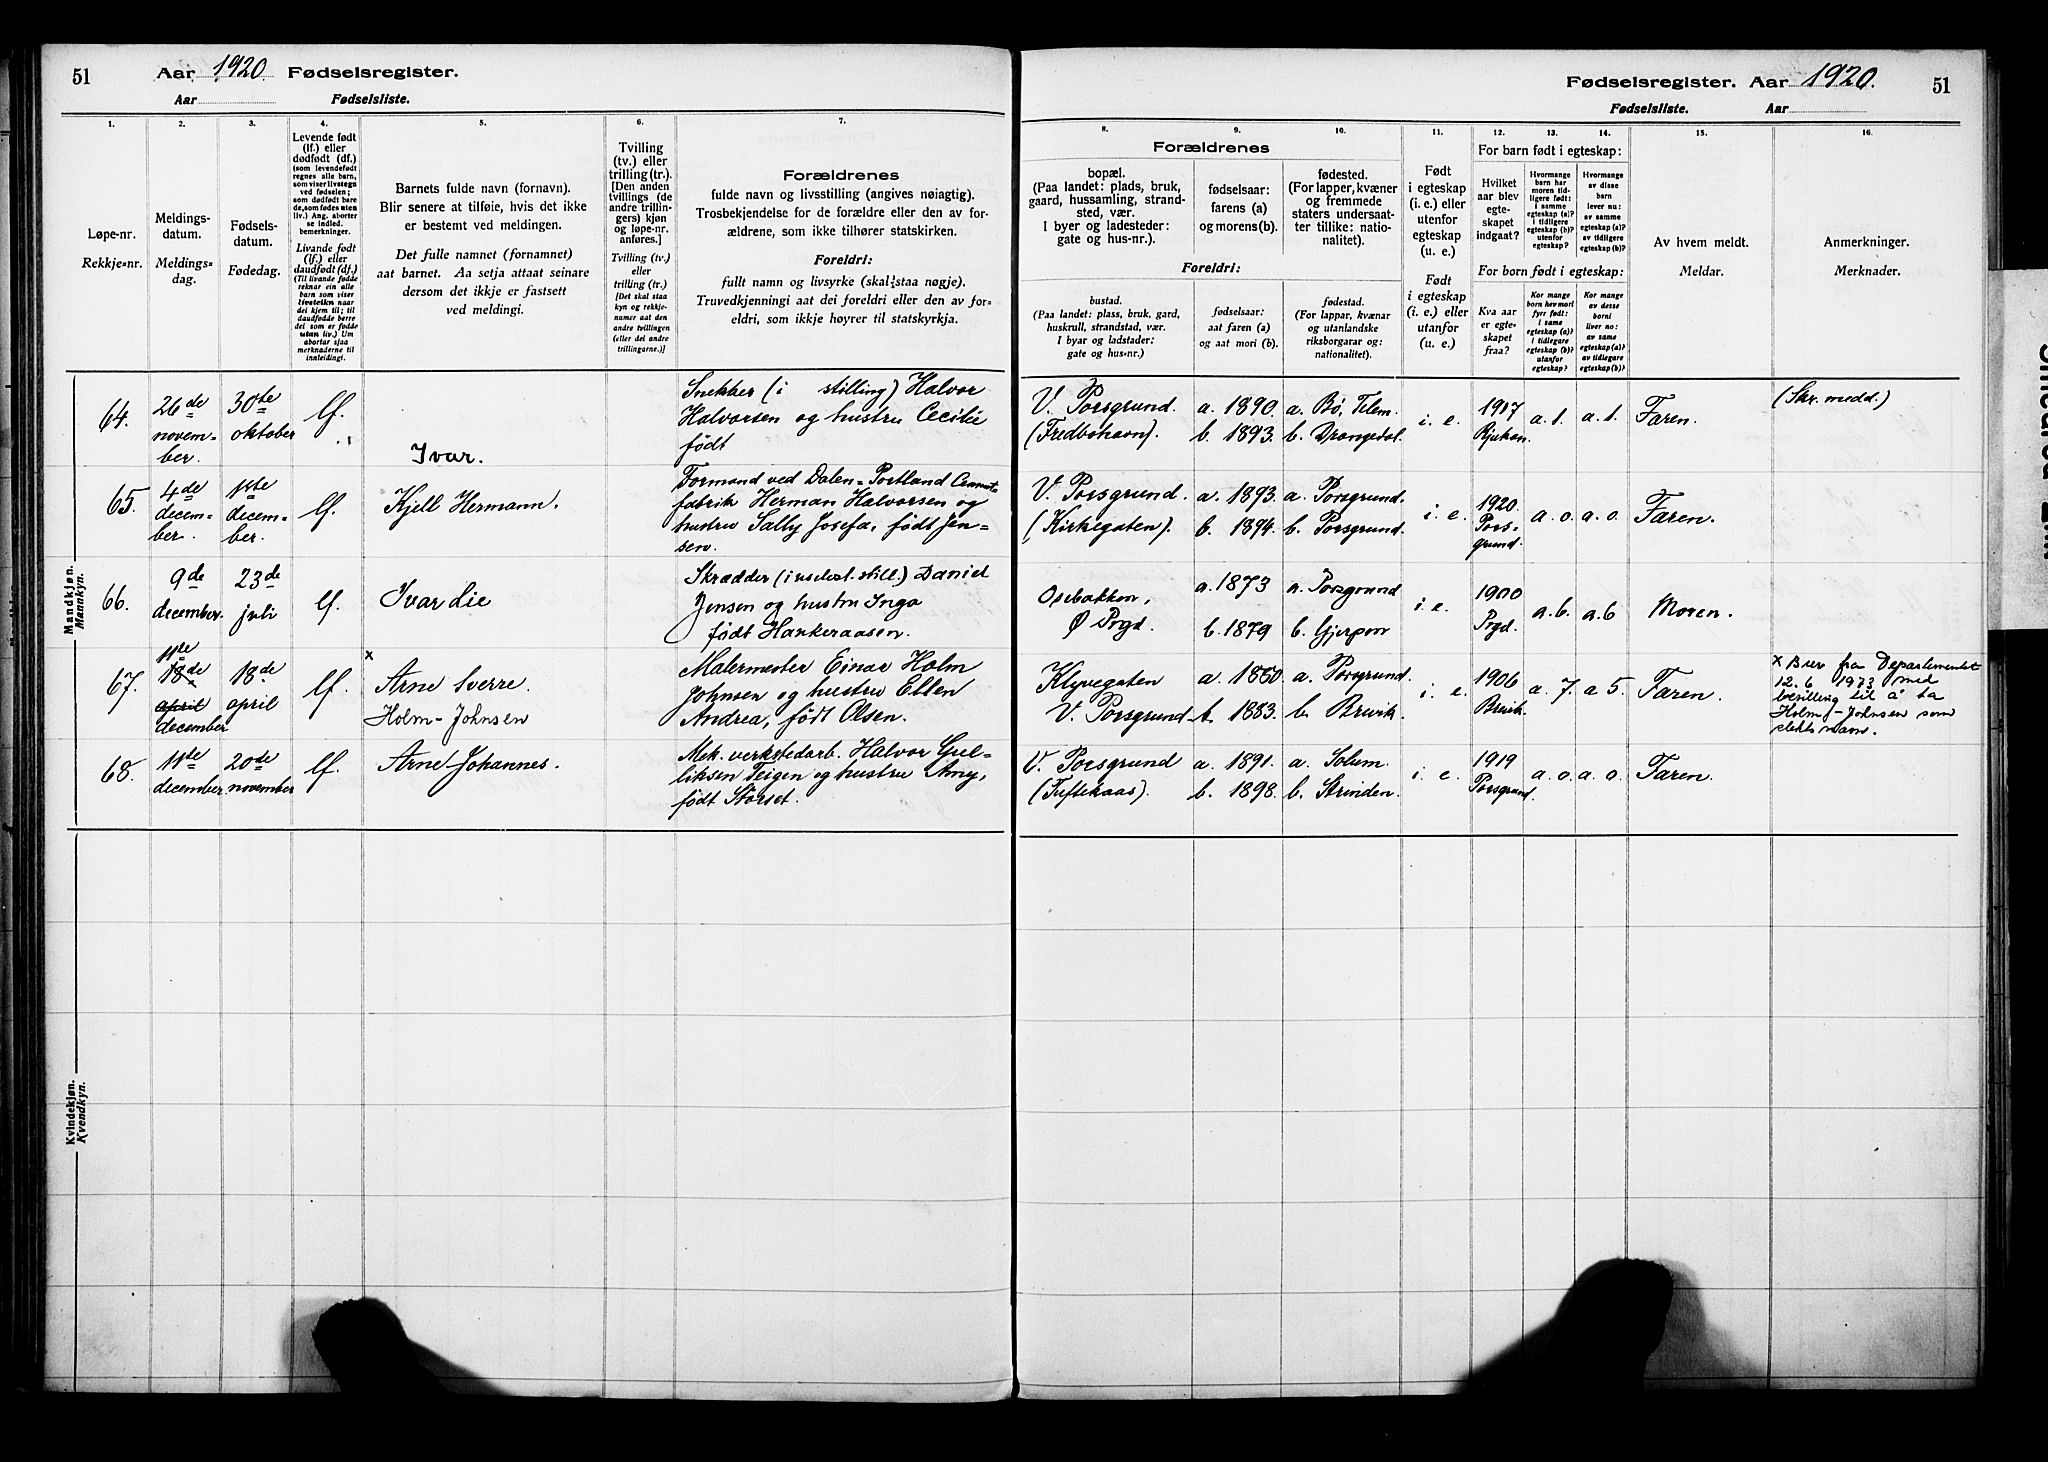 51
Aar 1920. Fødselsregister.
Aar Fødselsliste.
1.
Løpe-nr.
Rekkje-nr.
2.
Meldings-
datum.
Meldings-
dag.
3.
Fødsels-
datum.
Fødedag.
4.
Levende født
(lf.) eller
dødfødt (df.)
(som levendefødt
regnes alle barn,
som viser livstegn
ved fødselen;
som dødfødt bare
de, som fødes uten
liv.) Ang. aborter
se indled.
bemerkninger.
Livande født
(lf.) eller
daudfødt (df.)
(Til livande fødde
reknar ein alle
born som viser
livsteikn naar
dei kjem til; til
daudfødde berre
dei som er fødde
utan liv.) Um
abortar sjaa
merknaderne til
innleidingi.
5.
Barnets fulde navn (fornavn).
Blir senere at tilføie, hvis det ikke
er bestemt ved meldingen.
Det fulle namnet (fornamnet)
aat barnet. Aa setja attaat seinare
dersom det ikkje er fastsett
ved meldingi.
6.
Tvilling
(tv.) eller
trilling (tr.).
[Den anden
tvillings (de
andre trillin-
gers) kjøn
og løpe-nr.
anføres.]
Tvilling (tv.)
eller
trilling (tr.)
[Det skal staa
kyn og rekkje-
numer aat den
andre tvillingen
(eller dei andre
trillingarne.)]
7.
Forældrenes
fulde navn og livsstilling (angives nøiagtig).
Trosbekjendelse for de forældre eller den av for-
ældrene, som ikke tilhører statskirken.
Foreldri:
fullt namn og livsyrke (skal staa nøgje).
Truvedkjenningi aat dei foreldri eller den av for-
eldri, som ikkje høyrer til statskyrkja.
Mandkjøn.
Mannkyn.
64.
26de
novem-
ber.
30te
oktober
lf.
Ivar.
Snekker (i stilling) Halvor
Halvorsen og hustru Cecilie
født
65.
4de
decem-
ber.
1ste
decem-
ber.
lf.
Kjell Hermann.
Formand ved Dalen-Portland Cement-
fabrik Herman Halvorsen og
hustru Sally Josefa, født Jen-
sen.
66.
9de
december.
23de
juli
lf.
Ivar Lie
Skrædder (i still.) Daniel
Jensen og hustru Inga
født Hankeraasen.
67.
11te
18de
april
december
18de
april
lf.
x
Arne Sverre.
Holm-Johnsen
Malermester Einar Holm
Johnsen og hustru Ellen
Andrea, født Olsen.
68.
11te
december.
20de
november
lf.
Arne Johannes.
Mek. verkstedarb. Halvor Gul-
liksen Teigen og hustru Amy,
født Storset.
Kvindekjøn.
Kvendkyn.
Fødselsregister. Aar 1920. 51
Fødselsliste. Aar
8.
Forældrenes
bopæl.
(Paa landet: plads, bruk,
gaard, hussamling, strand-
sted, vær.
I byer og ladesteder:
gate og hus-nr.).
Foreldri:
bustad.
(Paa landet: plass, bruk, gard,
huskrull, strandstad, vær.
I byar og ladstader:
gate og hus-nr.)
9.
fødselsaar:
farens (a)
og morens (b).
fødselsaar:
aat faren (a)
og aat mori (b).
10.
fødested.
(For lapper, kvæner
og fremmede
staters undersaat-
ter tillike: natio-
nalitet).
fødestad.
(For lappar, kvænar
og utanlandske
riksborgarar og:
nationalitet).
11.
Født
i egteskap
(i. e.) eller
utenfor
egteskap
(u. e.)
Født
i egteskap
(i. e.) eller
utanfor
(u. e.)
12. 13. 14.
For barn født i egteskap:
Hvilket
aar blev
egte-
skapet
indgaat?
Hvormange
barn har
moren tid-
ligere født:
i samme
egteskap (a)?
i tidligere
egteskap (b)?
utenfor
egteskap?
Hvormange
av disse
barn
lever nu:
av samme
egteskap (a)?
av tidligere
egteskap (b)?
For born født i egteskap:
Kva aar
er egte-
skapet
fraa?
Kor mange
born hev mori
fyrr født:
i same
egteskap (a)?
i tidlegare
egteskap (b)?
utanfor
egteskap?
Kor mange
av desse
borni
liver no:
av same
egteskap (a)?
av tidlegare
egteskap (b)?
15.
Av hvem meldt.
Meldar.
16.
Anmerkninger.
Merknader.
V. Porsgrund.
(Fredbohavn).
a. 1890.
b. 1893.
a. Bø, Telem.
b. Drangedal.
i. e.
1917
Rjukan.
a. 1.
a. 1.
Faren.
(Skr. medd.)
V. Porsgrund.
(Kirkegaten).
a. 1893.
b. 1894.
a. Porsgrund.
b. Porsgrund.
i. e.
1920.
Pors-
grund.
a. o.
a. o.
Faren.
Osebakken,
Ø Prgd.
a. 1873
b. 1879
a. Porsgrund
b. Gjerpen
i. e.
1900
Prgd.
a. 6.
a. 6
Moren.
Klyvegaten
V. Porsgrund
a. 1880.
b. 1883.
a. Porsgrund.
b. Brevik.
i. e.
1906
Brevik.
a. 7.
a 5.
Faren.
x Brev fra Departementet
12.6 1973 med
bevilling til å ta
Holm-Johnsen som
slektsnavn.
V. Porsgrund
(Tuftekaas).
a. 1891.
b. 1898.
a. Solum.
b. Strinden.
i. e.
1919
Porsgrund.
a. o.
a. o.
Faren.